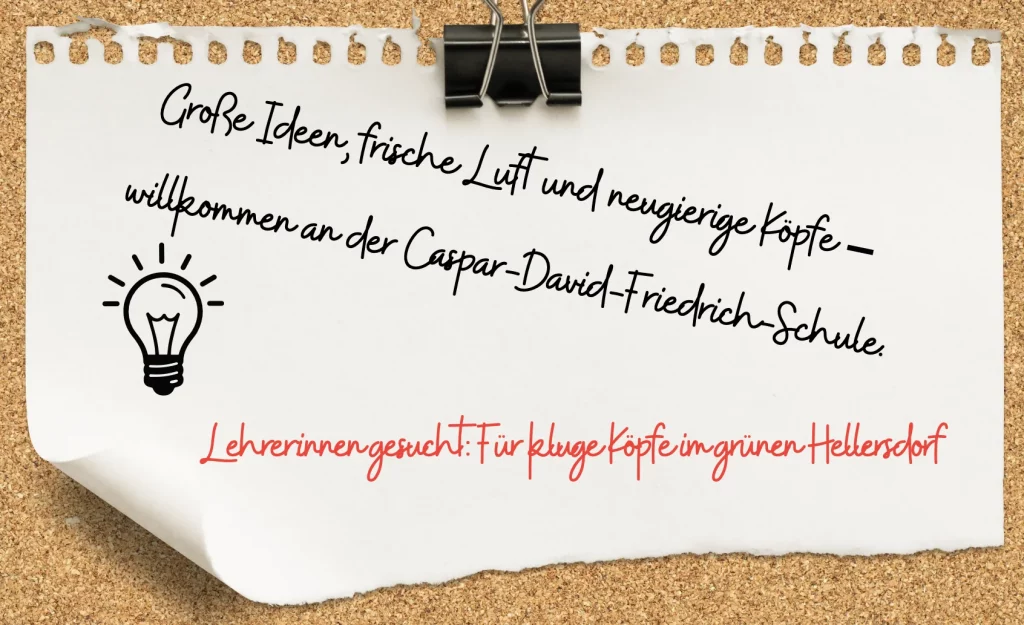 Große Ideen, frische Luft und neugierige Köpfe –
willkommen an der Caspar-David-Friedrich-Schule.
Lehrerinnen gesucht: Für kluge Köpfe im grünen Hellersdorf